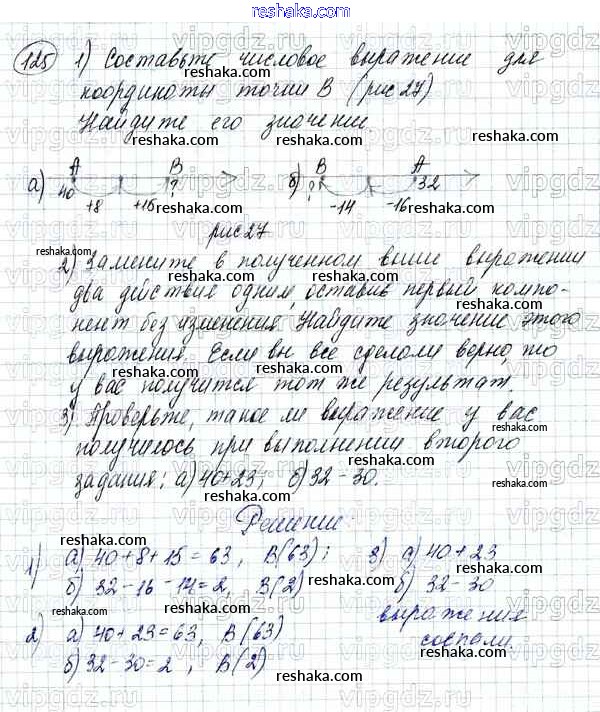 reshaka.com
125 1) Составьте числовое выражение для
координаты точки В (рис 27)
Найдите его значение.
А В В А
а) 40 ? б) ? 32
+8 +15 -14 -16
рис 27
2) Замените в полученном выше выражении
два действия одним, оставив первый компо-
нент без изменения. Найдите значение этого
выражения. Если вы все сделали верно, то
у вас получится тот же результат.
3) Проверьте, такое ли выражение у вас
получилось при выполнении второго
задания: а) 40+23; б) 32-30.
Решение
1) а) 40+8+15=63, В(63); 3) а) 40+23
б) 32-16-14=2, В(2) б) 32-30
2) а) 40+23=63, В(63) выражения
б) 32-30=2, В(2) совпали.
reshaka.com